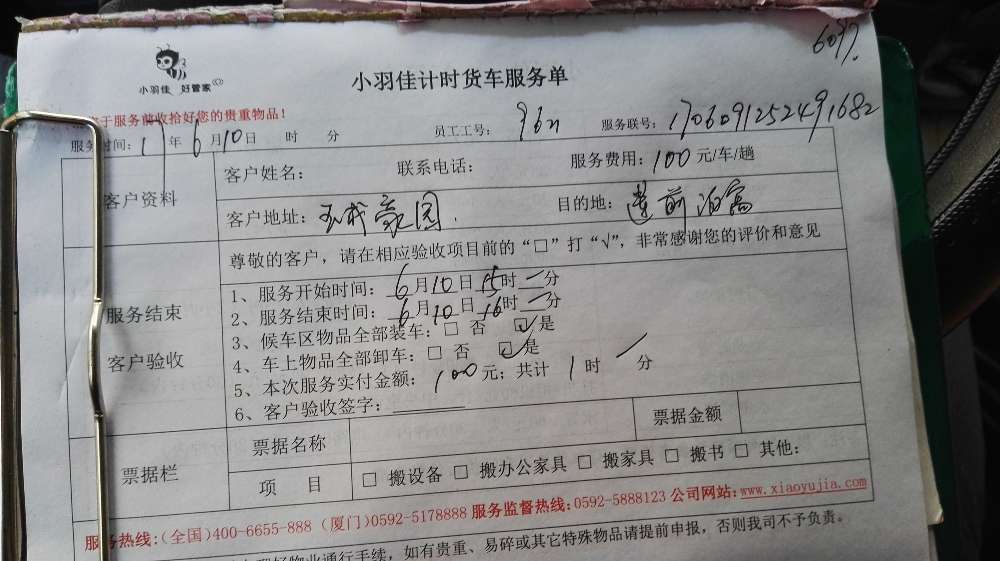 小羽佳 好管家
小羽佳计时货车服务单
于服务前收拾好您的贵重物品!
服务时间: 17年6月10日 时 分 员工工号: 服务联号: 1706091252491682
客户资料
客户姓名: 联系电话: 服务费用: 100元/车/趟
客户地址: 豪园 目的地: 莲前
尊敬的客户,请在相应验收项目前的“□”打“√”,非常感谢您的评价和意见
服务结束
客户验收
1、服务开始时间: 6月10日15时 分
2、服务结束时间: 6月10日16时 分
3、候车区物品全部装车: □ 否 ☑ 是
4、车上物品全部卸车: □ 否 ☑ 是
5、本次服务实付金额: 100元; 共计 1 时 分
6、客户验收签字:
票据栏
票据名称 票据金额
项 目 □ 搬设备 □ 搬办公家具 □ 搬家具 □ 搬书 □ 其他:
服务热线:(全国)400-6655-888 (厦门)0592-5178888 服务监督热线:0592-5888123 公司网站:www.xiaoyujia.com
物业通行手续,如有贵重、易碎或其它特殊物品请提前申报,否则我司不予负责。